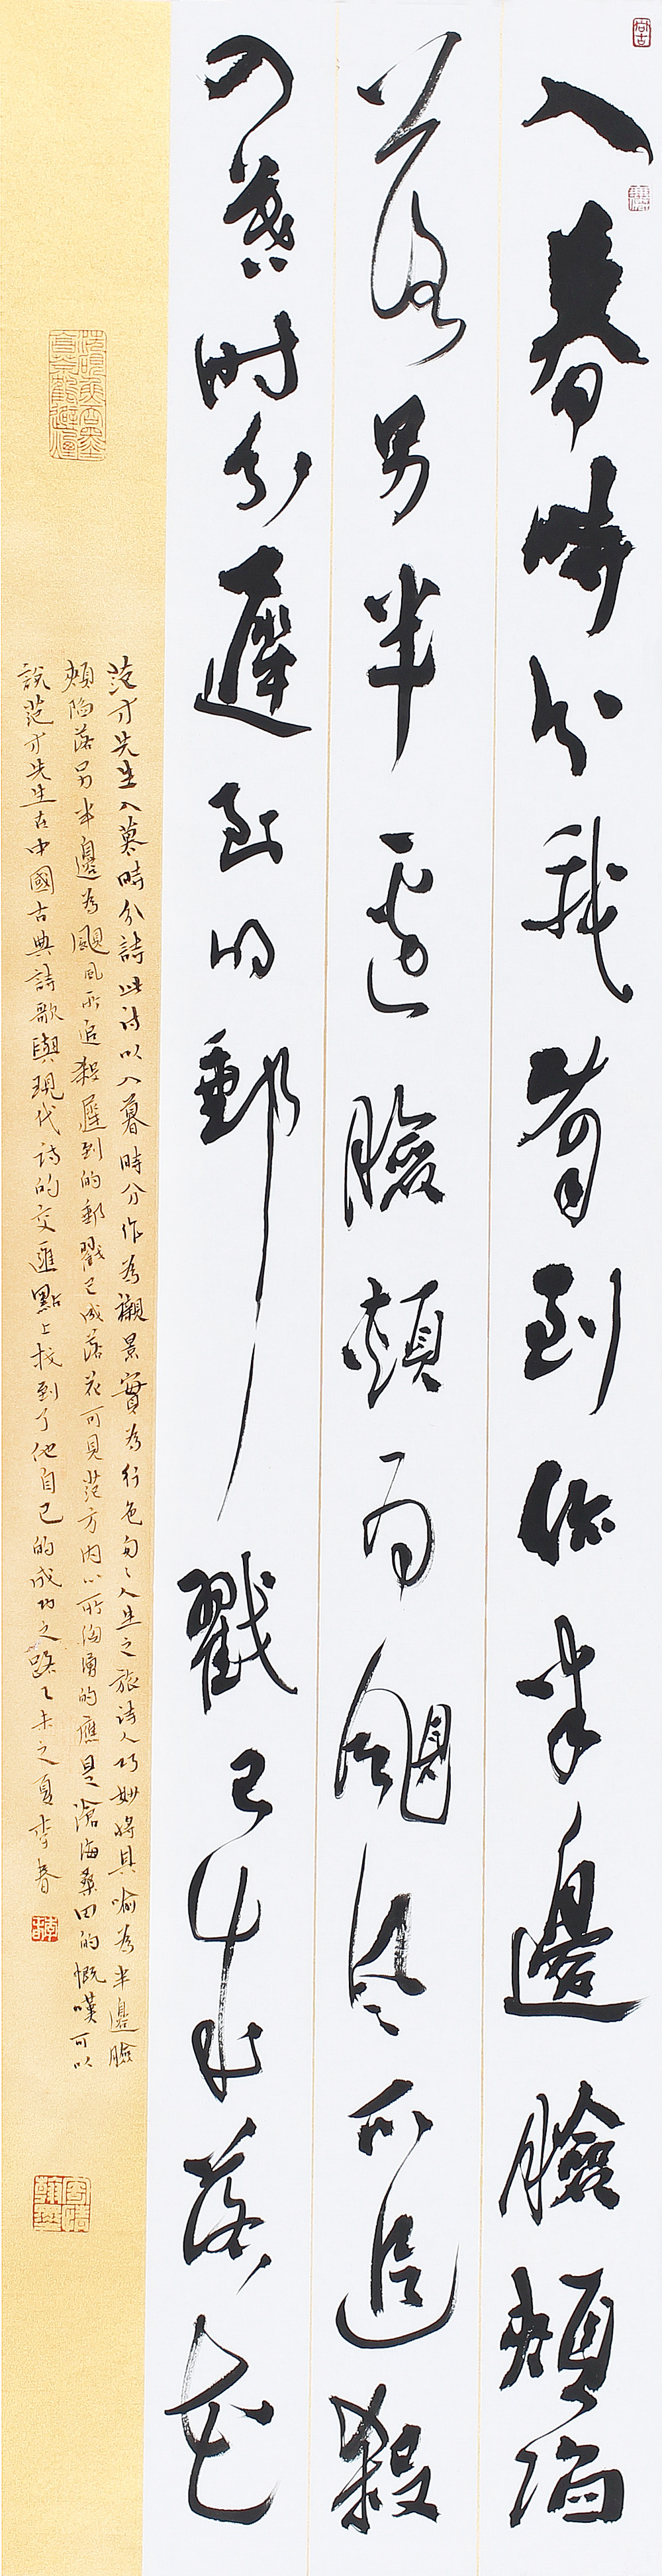 入暮時分我看到你半邊臉頰陷
落另半邊臉頰為颶風所追殺
入暮時分遲到的郵戳已成落花
范方先生入暮時分詩此詩以入暮時分作為襯景實為行色匆匆人生之旅詩人巧妙將其喻為半邊臉
頰陷落另半邊為颶風所追殺遲到的郵戳已成落花可見范方內心所洶湧的應是滄海桑田的慨嘆可以
說范方先生在中國古典詩歌與現代詩的交匯點上找到了他自己的成功之路乙未之夏李春